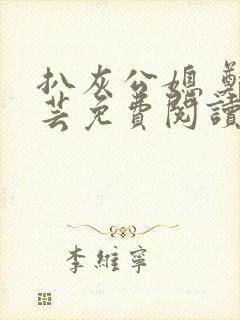 扒灰公媳 鄭
芸免費閱讀
李維寧